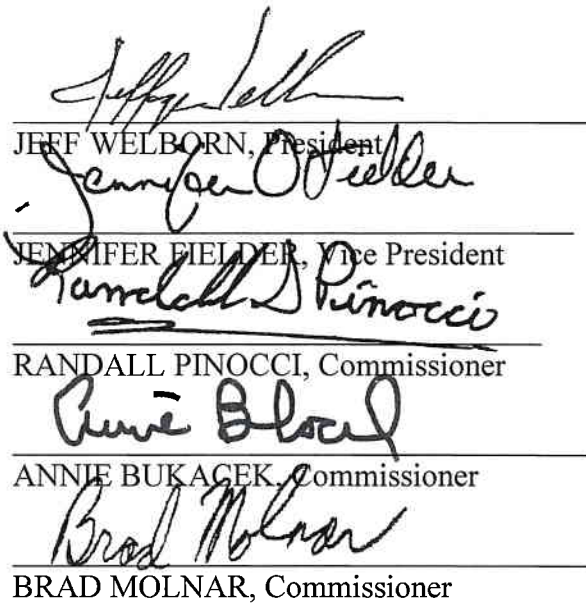 JEFF WELBORN, President
Jennifer O Fielder
JENNIFER FIELDER, Vice President
Randall S Pinocci
RANDALL PINOCCI, Commissioner
ANNIE BUKACEK, Commissioner
Brad Molnar
BRAD MOLNAR, Commissioner